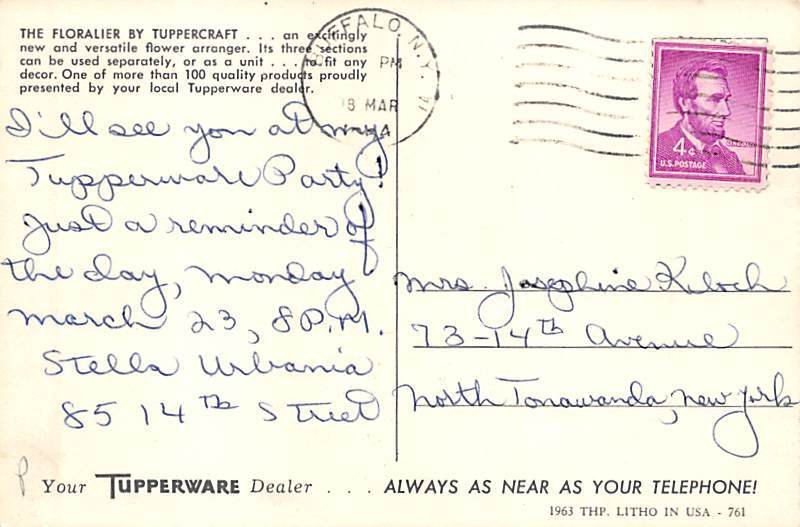 THE FLORALIER BY TUPPERCRAFT . . . an excitingly
new and versatile flower arranger. Its three sections
can be used separately, or as a unit . . . to fit any
decor. One of more than 100 quality products proudly
presented by your local Tupperware dealer.
BUFFALO, N.Y.
PM
8 MAR
4¢
U.S. POSTAGE
I'll see you at my
Tupperware Party!
Just a reminder of
the day, Monday
March 23, 8 P.M.
Stella Urbania
85 14th Street
Mrs. Josephine Kloch
73-14th Avenue
North Tonawanda, New York
Your TUPPERWARE Dealer . . . ALWAYS AS NEAR AS YOUR TELEPHONE!
1963 THP. LITHO IN USA - 761